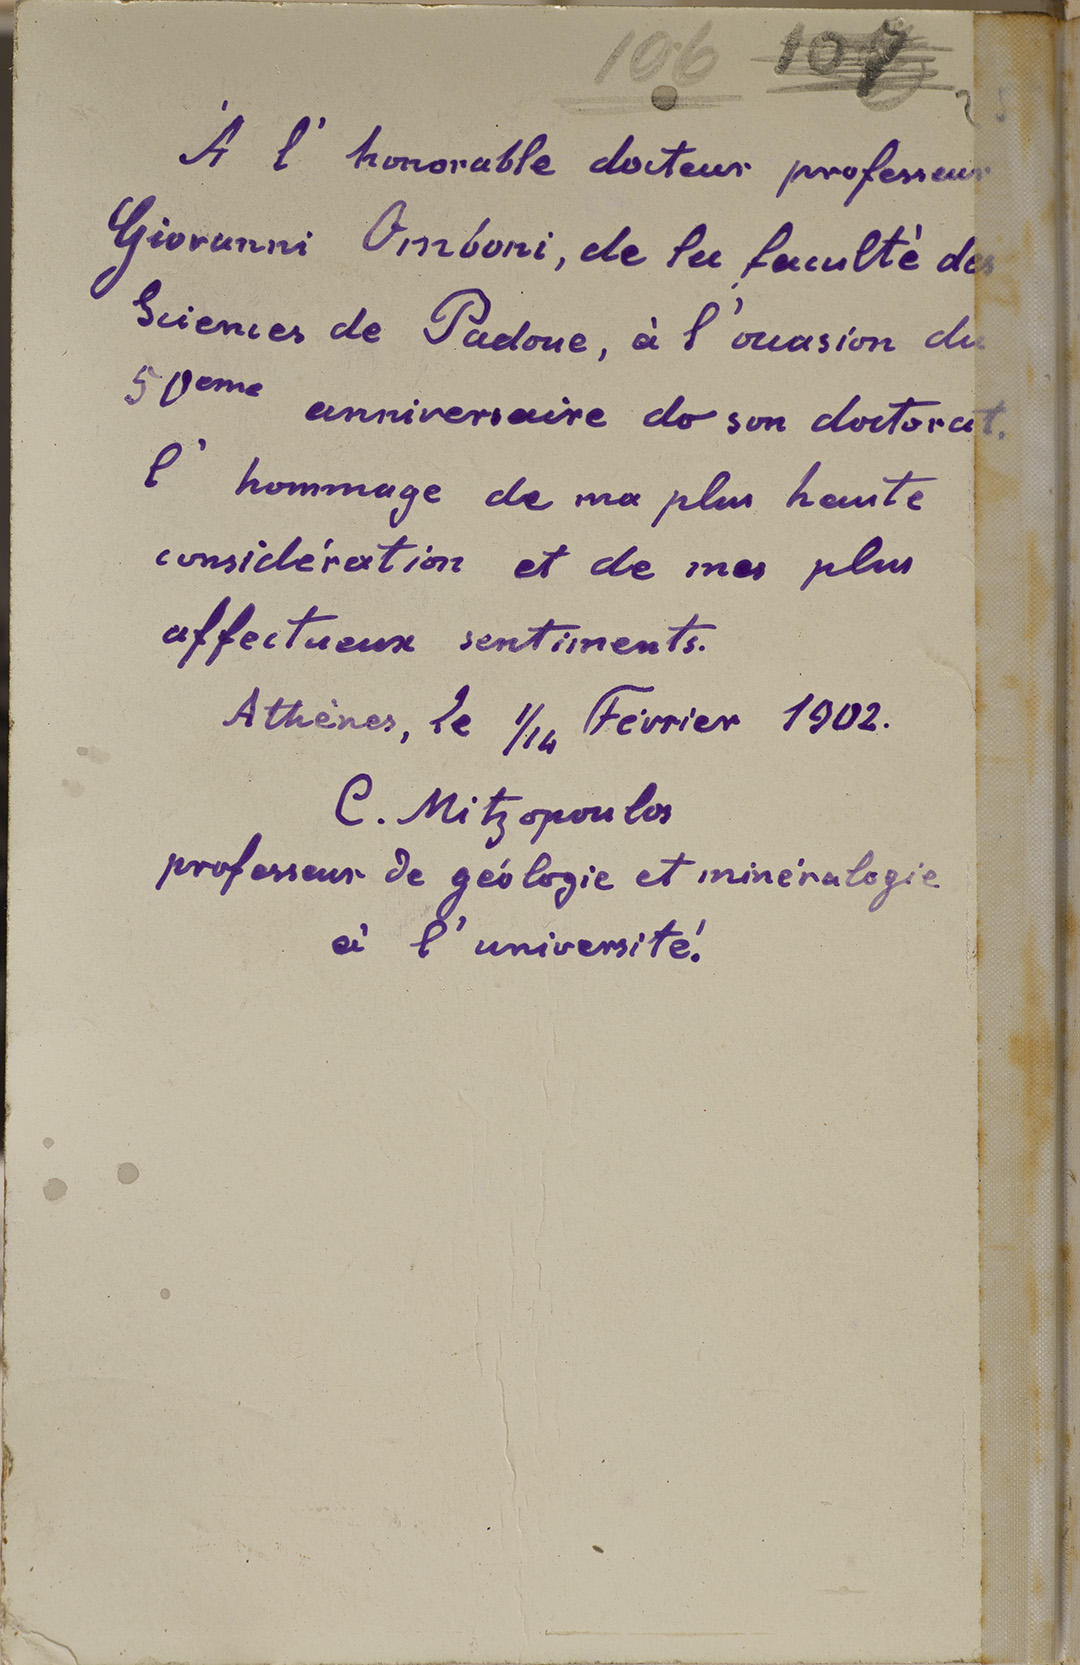 106 107
À l' honorable docteur professeur
Giovanni Omboni, de la faculté des
Sciences de Padoue, à l'occasion du
50eme anniversaire de son doctorat.
l' hommage de ma plus haute
considération et de mes plus
affectueux sentiments.
Athènes, le 1/14 Février 1902.
C. Mitzopoulos
professeur de géologie et minéralogie
à l'université.